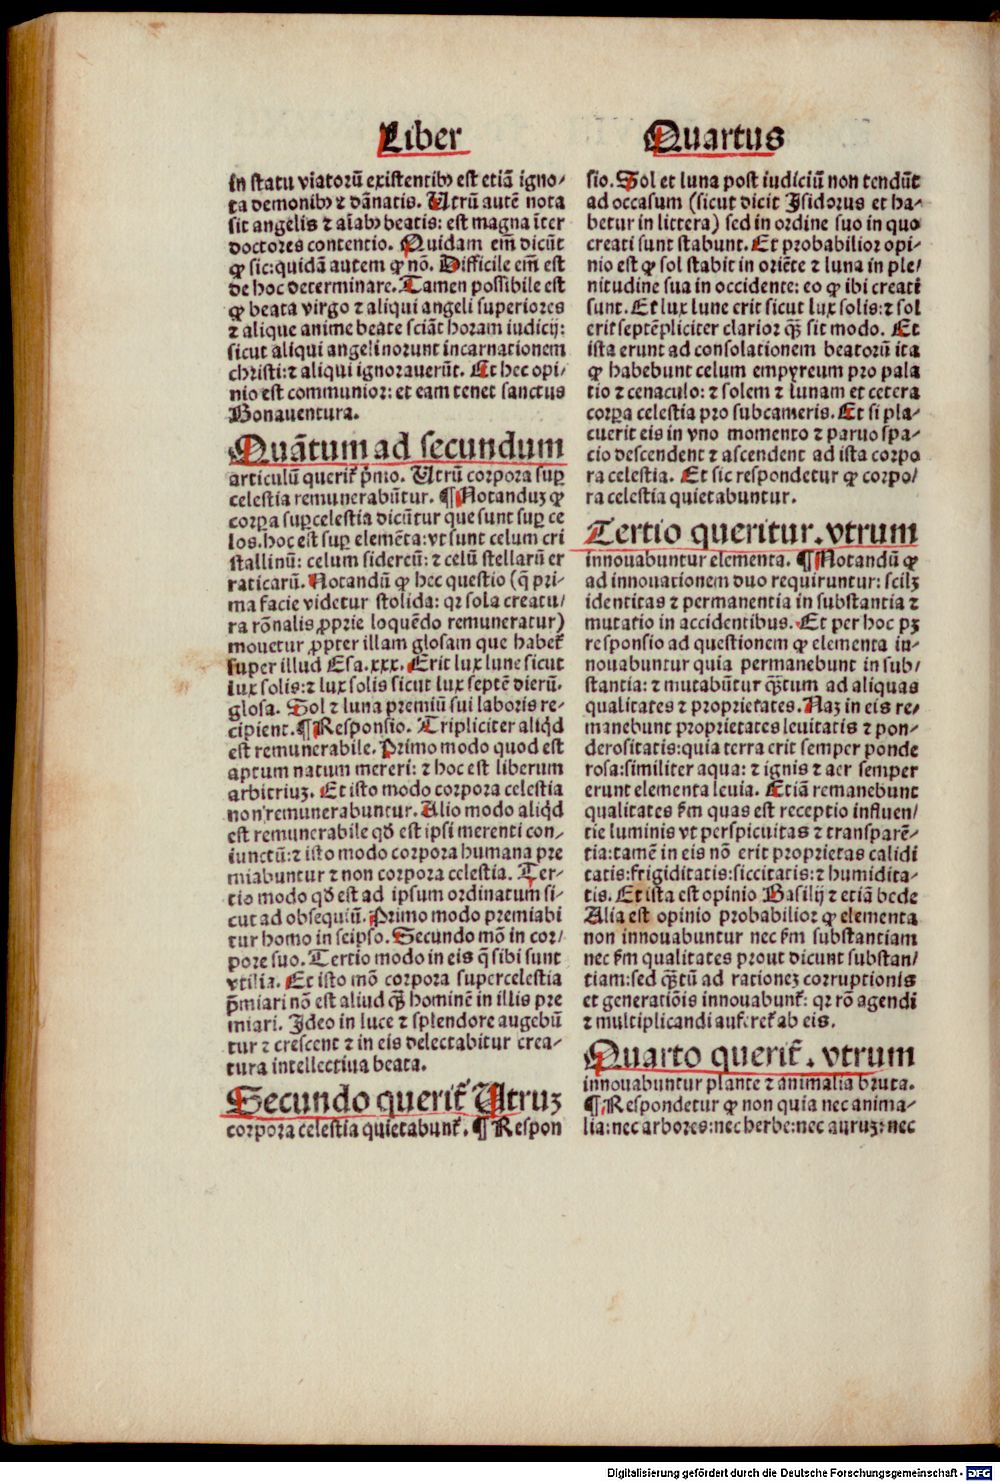 Liber Quartus
in statu viatorū existentibꝰ est etiā igno⸗
ta demonibꝰ ⁊ dānatis. Utrū autē nota
sit angelis ⁊ aīabꝰ beatis: est magna īter
doctores contentio. Quidam em̄ dicūt
ꝙ sic: quidā autem ꝙ nō. Difficile em̄ est
de hoc determinare. Tamen possibile est
ꝙ beata virgo ⁊ aliqui angeli superiores
⁊ alique anime beate sciāt horam iudicij:
sicut aliqui angeli norunt incarnationem
christi: ⁊ aliqui ignorauerūt. Et hec opi⸗
nio est communior: et eam tenet sanctus
Bonauentura.
Quātum ad secundum
articulū querit᷑ p̄mo. Utrū corpora suꝑ
celestia remunerabūtur. ¶ Notanduꝫ ꝙ
corꝑa suꝑcelestia dicūtur que sunt suꝑ ce
los. hoc est suꝑ elemēta: vt sunt celum cri
stallinū: celum sidereū: ⁊ celū stellarū er
raticarū. Notandū ꝙ hec questio (q̄ pri⸗
ma facie videtur stolida: qꝛ sola creatu⸗
ra rōnalis ꝓprie loquēdo remuneratur)
mouetur ꝓpter illam glosam que habet᷑
super illud Esa. xxx. Erit lux lune sicut
lux solis: ⁊ lux solis sicut lux septē dierū.
glosa. Sol ⁊ luna premiū sui laboris re⸗
cipient. ¶ Responsio. Tripliciter aliqd̄
est remunerabile. Primo modo quod est
aptum natum mereri: ⁊ hoc est liberum
arbitriuꝫ. Et isto modo corpora celestia
non remunerabuntur. Alio modo aliqd̄
est remunerabile qd̄ est ipsi merenti con⸗
iunctū: ⁊ isto modo corpora humana pre
miabuntur ⁊ non corpora celestia. Ter⸗
tio modo qd̄ est ad ipsum ordinatum si⸗
cut ad obsequiū. Primo modo premiabi
tur homo in seipso. Secundo mō in cor⸗
pore suo. Tertio modo in eis q̄ sibi sunt
vtilia. Et isto mō corpora supercelestia
p̄miari nō est aliud qꝫ̄ hominē in illis pre
miari. Ideo in luce ⁊ splendore augebū
tur ⁊ crescent ⁊ in eis delectabitur crea⸗
tura intellectiua beata.
Secundo querit᷑ Utruꝫ
corpora celestia quietabunt᷑. ¶ Respon
sio. Sol et luna post iudiciū non tendūt
ad occasum (sicut dicit Isidorus et ha⸗
betur in littera) sed in ordine suo in quo
creati sunt stabunt. Et probabilior opi⸗
nio est ꝙ sol stabit in oriēte ⁊ luna in ple⸗
nitudine sua in occidente: eo ꝙ ibi creati
sunt. Et lux lune erit sicut lux solis: ⁊ sol
erit septēpliciter clarior qꝫ̄ sit modo. Et
ista erunt ad consolationem beatorū ita
ꝙ habebunt celum empyreum pro pala
tio ⁊ cenaculo: ⁊ solem ⁊ lunam et cetera
corꝑa celestia pro subcameris. Et si pla⸗
cuerit eis in vno momento ⁊ paruo spa⸗
cio descendent ⁊ ascendent ad ista corpo
ra celestia. Et sic respondetur ꝙ corpo⸗
ra celestia quietabuntur.
Tertio queritur. vtrum
innouabuntur elementa. ¶ Notandū ꝙ
ad innouationem duo requiruntur: scilꝫ
identitas ⁊ permanentia in substantia ⁊
mutatio in accidentibus. Et per hoc pꝫ
responsio ad questionem ꝙ elementa in⸗
nouabuntur quia permanebunt in sub⸗
stantia: ⁊ mutabūtur qꝫ̄tum ad aliquas
qualitates ⁊ proprietates. Naꝫ in eis re⸗
manebunt proprietates leuitatis ⁊ pon⸗
derositatis: quia terra erit semper ponde
rosa: similiter aqua: ⁊ ignis ⁊ aer semper
erunt elementa leuia. Etiā remanebunt
qualitates ẜm quas est receptio influen⸗
tie luminis vt perspicuitas ⁊ transparē⸗
tia: tamē in eis nō erit proprietas calidi
tatis: frigiditatis: siccitatis: ⁊ humidita⸗
tis. Et ista est opinio Basilij ⁊ etiā bede
Alia est opinio probabilior ꝙ elementa
non innouabuntur nec ẜm substantiam
nec ẜm qualitates prout dicunt substan⸗
tiam: sed qꝫ̄tū ad rationeꝫ corruptionis
et generatiōis innouabunt᷑: qꝛ rō agendi
⁊ multiplicandi auferet᷑ ab eis.
Quarto querit᷑. vtrum
innouabuntur plante ⁊ animalia bruta.
¶ Respondetur ꝙ non quia nec anima⸗
lia: nec arbores: nec herbe: nec auruꝫ: nec
Digitalisierung gefördert durch die Deutsche Forschungsgemeinschaft - DFG